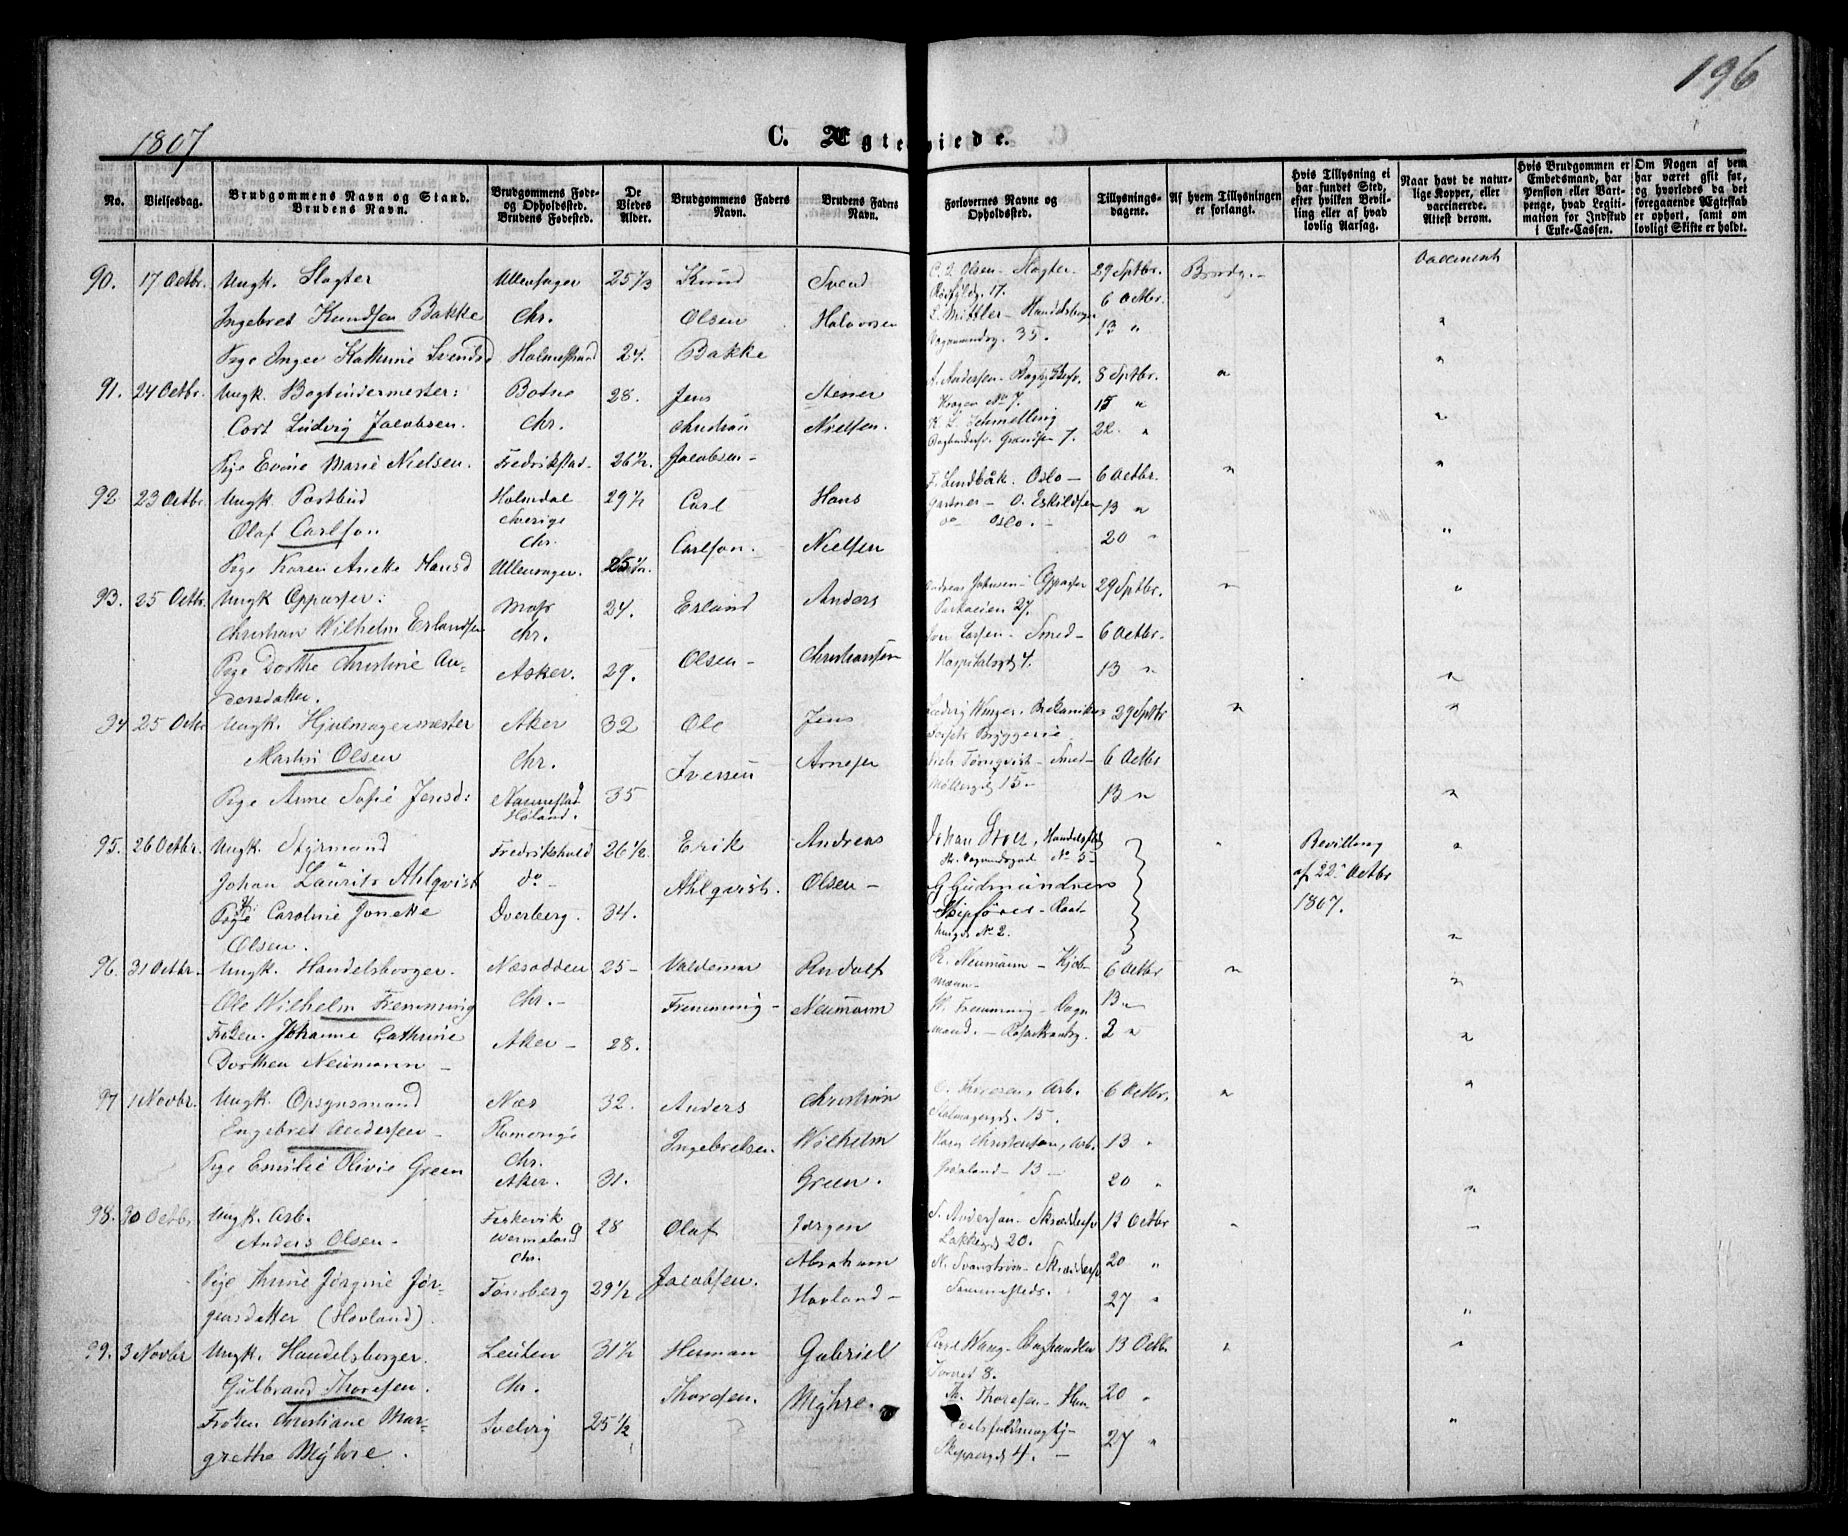 196
1867
C. Ægteviede.
No. Vielsesdag. Brudgommens Navn og Stand. Brudens Navn. Brudgommens Føde- og Opholdssted. Brudens Fødested. De Viedes Alder. Brudgommens Faders Navn. Brudens Faders Navn. Forlovernes Navne og Opholdssted. Tillysnings-dagene. Af hvem Tillysningen er forlangt. Hvis Tillysning ei har fundet Sted, efter hvilken Bevilling eller af hvad lovlig Aarsag. Naar havt de naturlige Kopper, eller vaccinerede. Attest derom. Hvis Brudgommen er Embedsmand, har Pension eller Vartpenge, hvad Legitimation for Indskud i Enke-Cassen. Om Nogen af dem har været gift før, og hvorledes da det foregaaende Ægteskab er ophørt, samt om lovligt Skifte er holdt.
90. 17 Octbr. Ungk. Slagter Ullensager 25 1/3 Knud Svend C. J. Olsen - Slagter - 29 Sptbr. Brudg.
17. 6 Octbr.
Ingebret Knudsen Bakke Chr. Olsen Halvorsen L. Mittler - Handelsborger 13 "
35.
Pige Inger Kathrine Svendsd Holmestrand 24. Bakke "
91. 24 Octbr. Ungk. Bogbindermester: Botne 28. Jens Stener A. Andersen - 8 Sptbr. "
Kragen No 7. 15 "
Cort Ludvig Jacobsen. Chr. Christian Nielsen. K. L. Schmelling 22. " "
Grændsen 7.
Pige Evine Marie Nielsen. Fredrikstad - 26 1/2. Jacobsen - "
92 23 Octbr. Ungk Postbud Holmdal 29 1/2 Carl Hans F. Lindbäk. Oslo - 6 Octbr. "
Sverige Gartner - O. Eskildsen 13 "
Olaf Carlson Chr. Carlson. Nielsen do Oslo. - 20 " "
Pige Karen Anette Hansd Ullensager. 25 1/2.
93. 25 Octbr. Ungk Oppasser: Moss 24. Erland Anders Andreas Johnsen - Oppasser 29 Sptbr. " "
27.
Christian Wilhelm Erlandsen Chr. Larsen - Smed - 6 Octbr.
Pige Dorthe Christine An- Asker. 29. Olsen - Christiansen Hospitalsgd 4. 13 " "
dersdatter.
94 25 Octbr Ungk. Hjulmagermester Aker 32 Ole Jens Ludvig Winger. 29 Sptbr " "
Bryggerie
Martin Olsen Chr. Iversen Arnesen Törnqvist - Smed - 6 Octbr
Møllergd 15 -
Pige Anne Sofie Jensd: Nannestad 35 13 " "
Høland.
95. 26 Octbr. Ungk. Styrmand Fredrikshald 26 1/2 Erik Andreas Johan " Bevilling "
No 5 - af 22. Octbr
Johan Laurits Ahlqvist do - Ahlqvist. Olsen - G Gudmundsen 1867.
Pige Caroline Jonette Dverberg. 34. Skipfører -
Olsen. No 2. "
96. 31 Octbr. Ungk. Handelsborger. Næsodden 25 - Valdemar Rudolf R. Neumann - Kjøb- 6 Octbr " "
mann -
Ole Wilhelm Fremming Chr. - Fremming - Neumann W. Fremming - 13 "
Frøken. Johanne Cathrine Aker - 28. 2 " "
Dorthea Neumann -
97 1 Novbr. Ungk. Opsynsmand Næs 32. Anders Christian Arb. 6 Octbr. " "
15.
Engebret Andersen - Romerige Ingebretsen Wilhelm Christensen, Arb. 13 "
Chr.
Pige Emilie Olivie Green Aker. 31. Green. Grønland - 13 - 20 " "
98. 30 Octbr. Ungk. Arb. 28 Olaf Jørgen Andersen. 13 Octbr " "
Anders Olsen - Wermeland Lakkegd 20.
Chr. Abraham N. Svanstrøm - 20 "
Pige Thrine Jørgine Jør- Tønsberg 29 1/2 Jacobsen. Hovland - Sammesteds. 27 " "
gensdatter (Hovland).
99. 3 Novbr Ungk. Handelsborger. Leuten 31 1/2 Herman Gabriel Carl Wang - 13 Octbr. " "
8.
Gulbrand Thoresen. Chr. Thoresen. Myhre. Th. Thoresen - 20 "
Frøken Christiane Mar- Svelvig 25 1/2 27 " "
grethe Myhre. 4. -